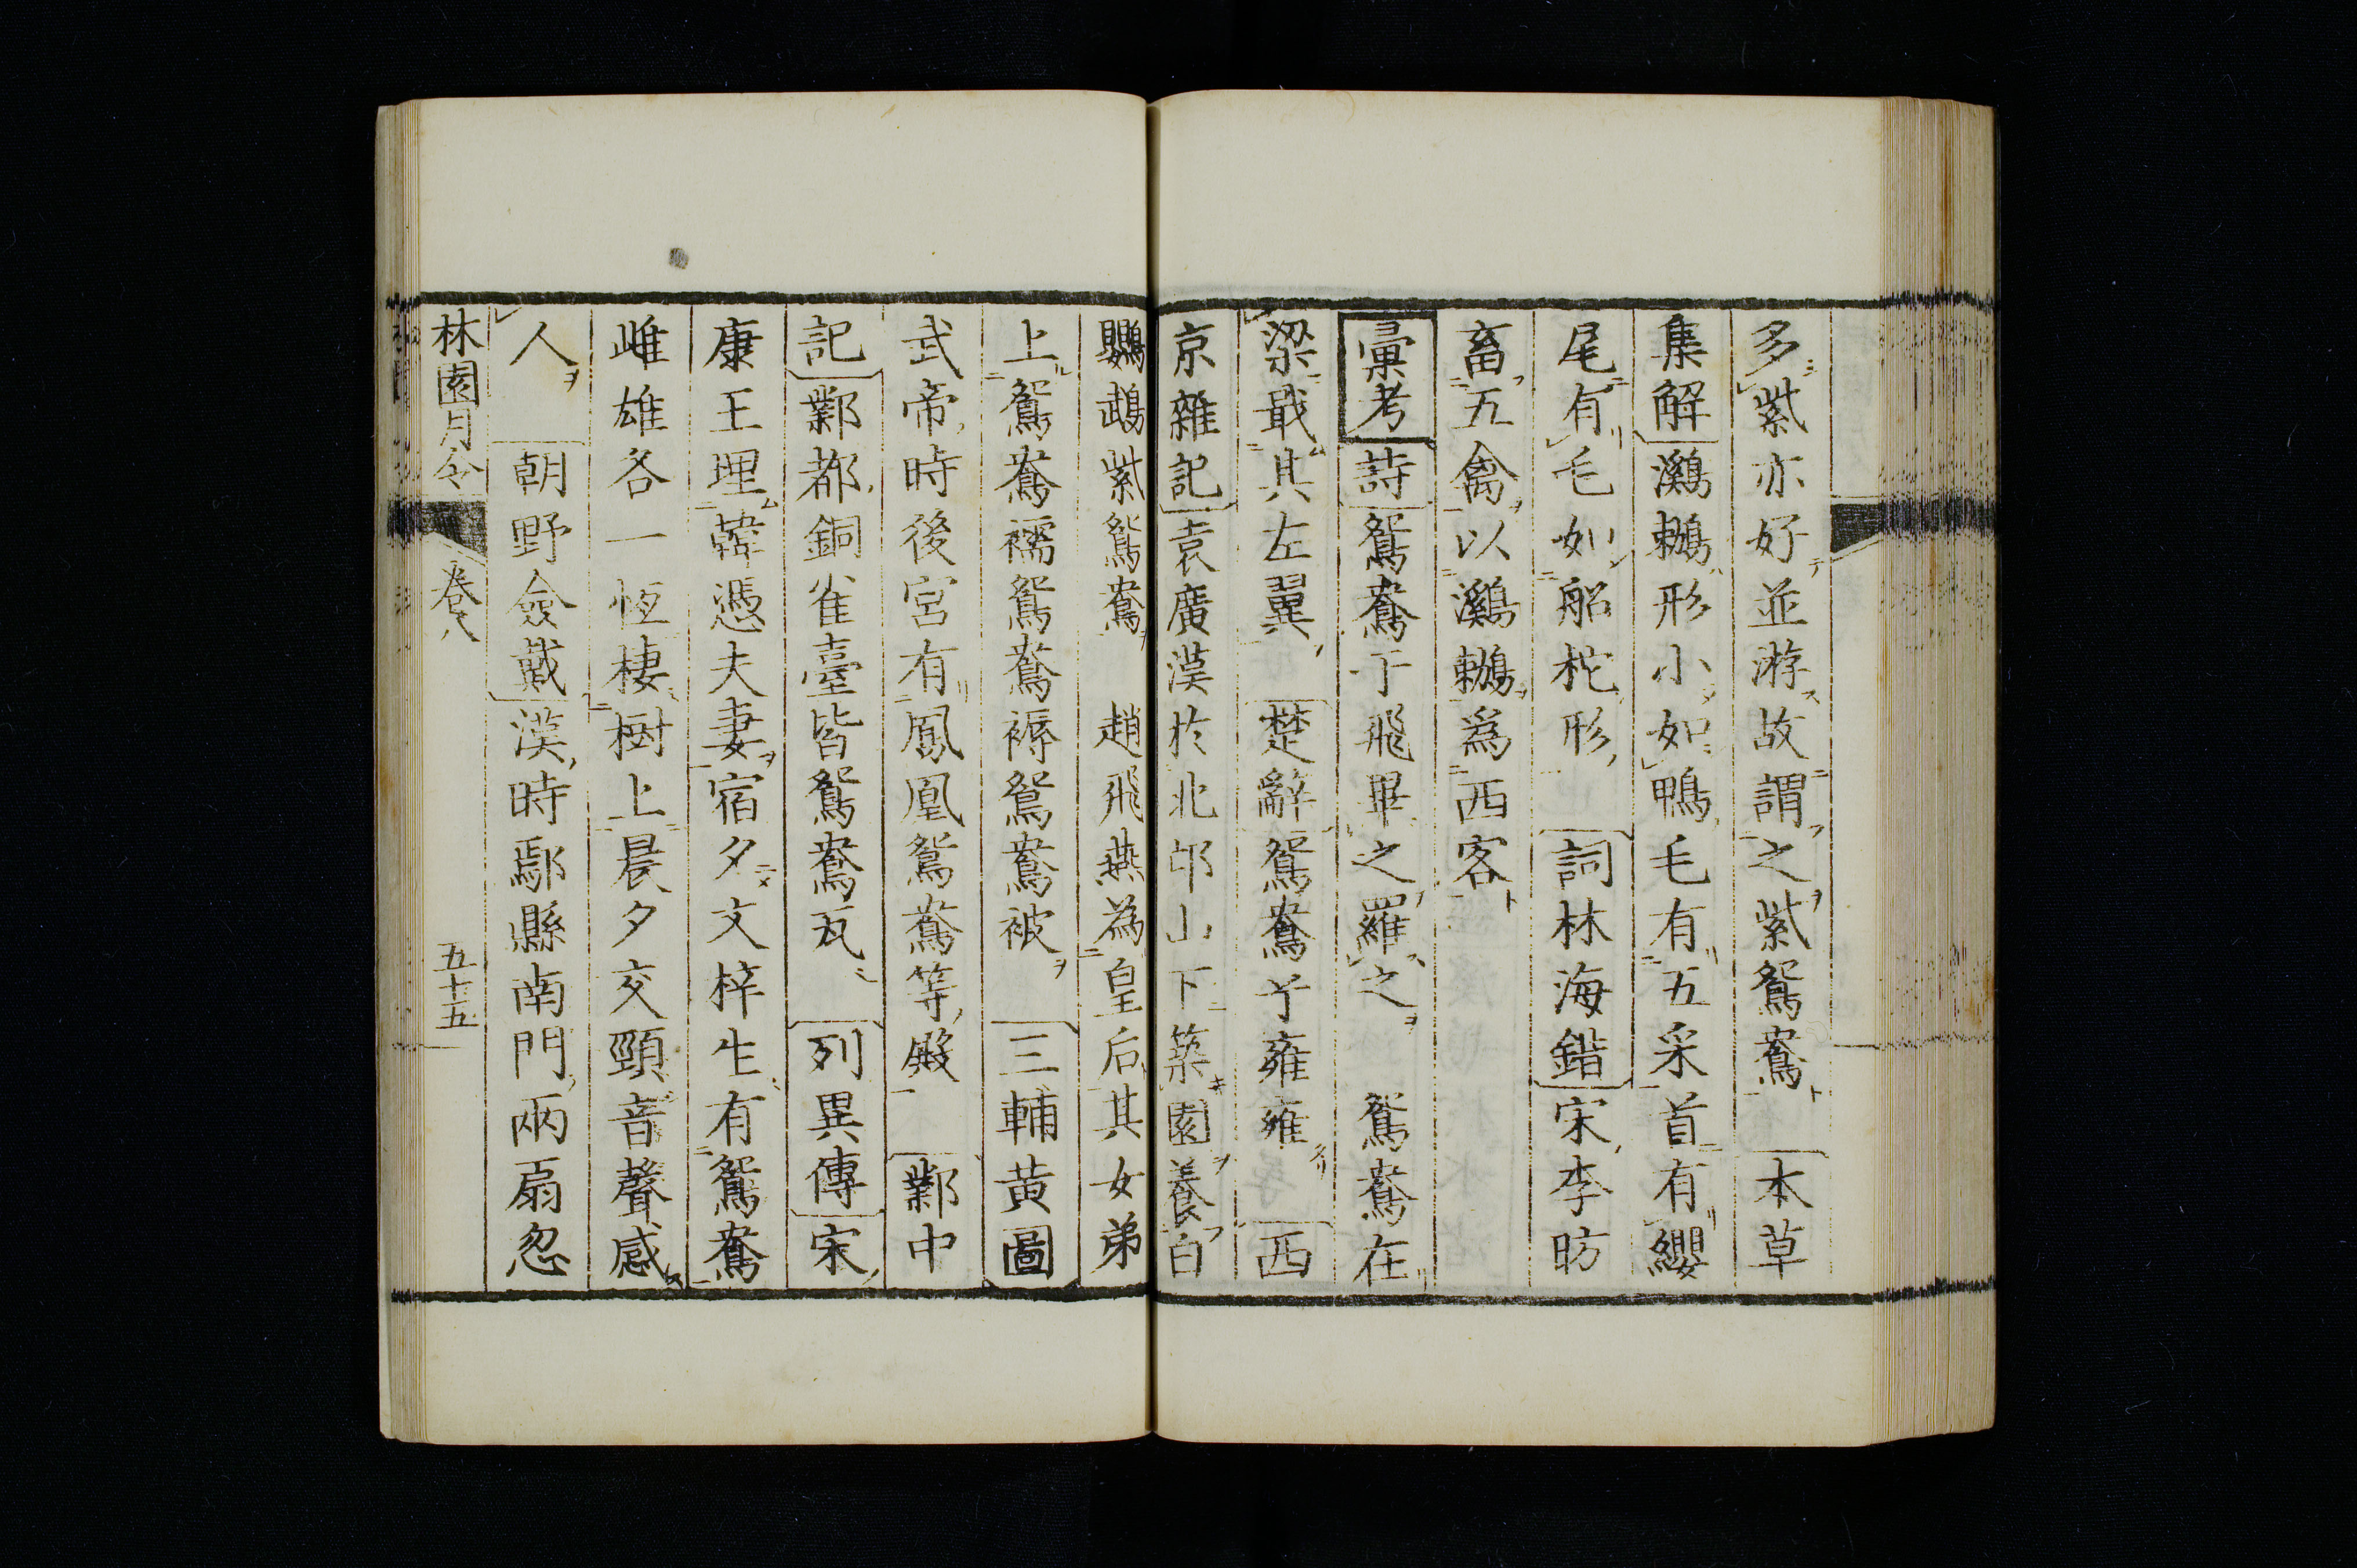 多紫亦好並游故謂之紫鴛鴦 本草
集解 鸂鶒形小如鴨毛有五采首有纓
尾有毛如船柁形 詞林海錯 宋李昉
畜五禽以鸂鶒為西客
彙考 詩 鴛鴦于飛畢之羅之 鴛鴦在
梁戢其左翼 楚辭 鴛鴦兮雍雍 西
京雜記 袁廣漢於北邙山下築園養白
鸚鵡紫鴛鴦 趙飛燕為皇后其女弟
上鴛鴦襦鴛鴦褥鴛鴦被 三輔黄圖
武帝時後宮有鳳凰鴛鴦等殿 鄴中
記 鄴都銅雀臺皆鴛鴦瓦 列異傳 宋
康王埋韓憑夫妻宿夕文梓生有鴛鴦
雌雄各一恆棲樹上晨夕交頸音聲感
人 朝野僉載 漢時鄢縣南門兩扇忽
林園月令 卷八 五十五